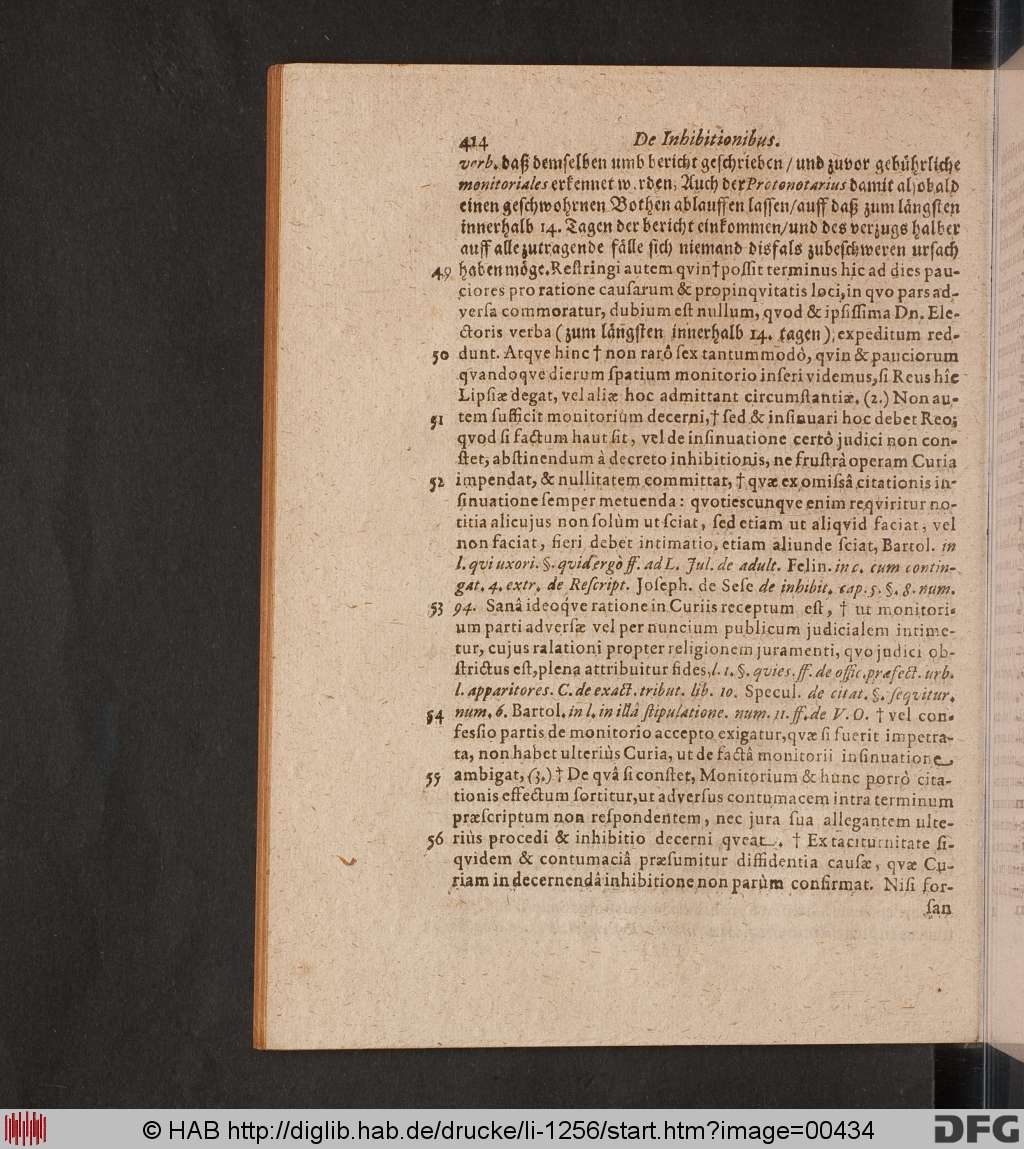 414 De Inhibitionibus.
verb. daß demselben umb bericht geschrieben / und zuvor gebührliche
monitoriales erkennet w rden; Auch der Protonotarius damit alsobald
einen geschwohrnen Bothen ablauffen lassen/auff daß zum längsten
innerhalb 14. Tagen der bericht einkommen/und des verzugs halber
auff alle zutragende fälle sich niemand disfals zubeschweren ursach
49 haben möge. Reſtringi autem qvin † poſſit terminus hic ad dies pau-
ciores pro ratione cauſarum & propinqvitatis loci, in qvo pars ad-
verſa commoratur, dubium eſt nullum, qvod & ipſiſſima Dn. Ele-
ctoris verba (zum längsten innerhalb 14. tagen) expeditum red-
50 dunt. Atqve hinc † non rarò ſex tantummodò, qvin & pauciorum
qvandoqve dierum ſpatium monitorio inſeri videmus, ſi Reus hîc
Lipſiæ degat, vel aliæ hoc admittant circumſtantiæ. (2.) Non au-
51 tem ſufficit monitorium decerni, † ſed & inſinuari hoc debet Reo;
qvod ſi factum haut ſit, vel de inſinuatione certò judici non con-
ſtet, abſtinendum à decreto inhibitionis, ne fruſtrà operam Curia
52 impendat, & nullitatem committat, † qvæ ex omiſsâ citationis in-
ſinuatione ſemper metuenda: qvotiescunqve enim reqviritur no-
titia alicujus non ſolùm ut ſciat, ſed etiam ut aliqvid faciat, vel
non faciat, fieri debet intimatio, etiam aliunde ſciat, Bartol. in
l. qvi uxori. §. qvid ergò ff. ad L. Jul. de adult. Felin. in c. cum contin-
gat. 4. extr. de Reſcript. Joſeph. de Seſe de inhibit. cap. 5. §. 8. num.
53 94. Sanâ ideoq́ve ratione in Curiis receptum eſt, † ut monitori-
um parti adverſæ vel per nuncium publicum judicialem intime-
tur, cujus ralationi propter religionem juramenti, qvo judici ob-
ſtrictus eſt, plena attribuitur fides, l. 1. §. qvies. ff. de offic. præfect. urb.
l. apparitores. C. de exact. tribut. lib. 10. Specul. de citat. §. ſeqvitur.
54 num. 6. Bartol. in l. in illâ ſtipulatione. num. 11. ff. de V. O. † vel con-
feſſio partis de monitorio accepto exigatur, qvæ ſi fuerit impetra-
ta, non habet ulteriùs Curia, ut de factâ monitorii inſinuatione
55 ambigat, (3.) † De qvâ ſi conſtet, Monitorium & hunc porrò cita-
tionis effectum ſortitur, ut adverſus contumacem intra terminum
præſcriptum non reſpondentem, nec jura ſua allegantem ulte-
56 riùs procedi & inhibitio decerni qveat. † Ex taciturnitate ſi-
qvidem & contumaciâ præſumitur diffidentia cauſæ, qvæ Cu-
riam in decernendâ inhibitione non parùm confirmat. Niſi for-
ſan
© HAB http://diglib.hab.de/drucke/li-1256/start.htm?image=00434
DFG